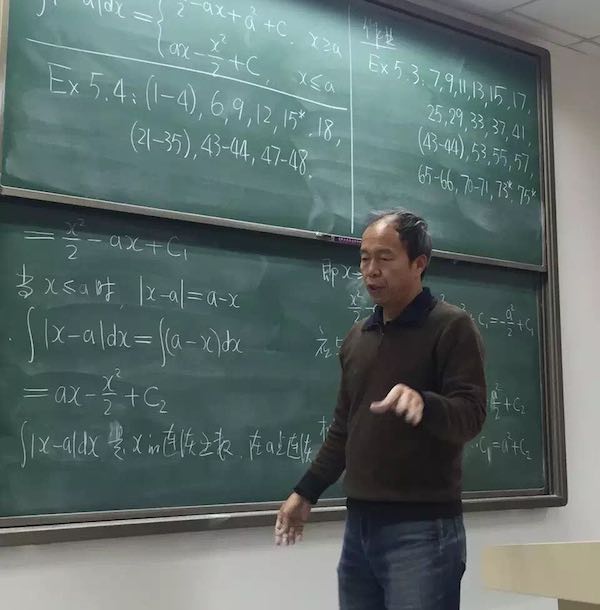 ∫|x-a|dx = { x²/2 - ax + a² + C, x ≥ a
ax - x²/2 + C, x ≤ a
Ex 5.4: (1-4), 6, 9, 12, 15*, 18,
(21-35), 43-44, 47-48.
作业
Ex 5.3: 7, 9, 11, 13, 15, 17,
25, 29, 33, 37, 41,
(43-44), 53, 55, 57,
65-66, 70-71, 73*, 75*
= x²/2 - ax + C₁
当 x ≤ a 时, |x-a| = a-x
∫|x-a|dx = ∫(a-x)dx
= ax - x²/2 + C₂
∫|x-a|dx 是 x 的连续函数, 在 a 点连续
即 x
x²/2
C₁ = -a²/2 + C
a²/2 + C₂
C₁ = a² + C₂